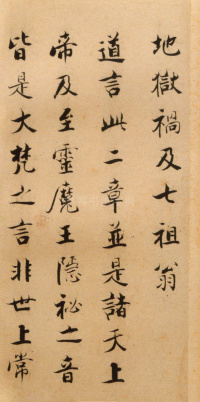 地獄禍及七祖翁
道言此二章並是諸天上
帝及至靈魔王隱祕之音
皆是大梵之言非世上常